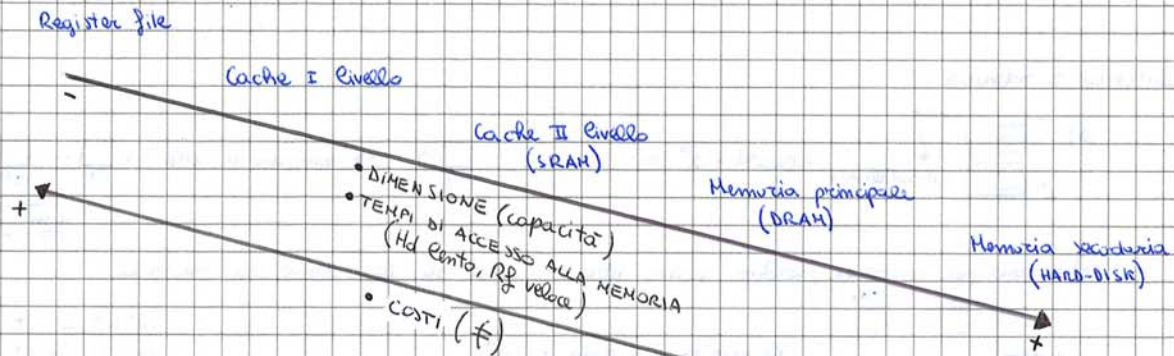 Register file
Cache I livello
Cache II livello
(SRAM)
Memoria principale
(DRAM)
Memoria secodaria
(HARD-DISK)
-
+
• DIMENSIONE (capacità)
• TEMPI DI ACCESSO ALLA MEMORIA
(Hd lento, Rf veloce)
• COSTI (€)
+